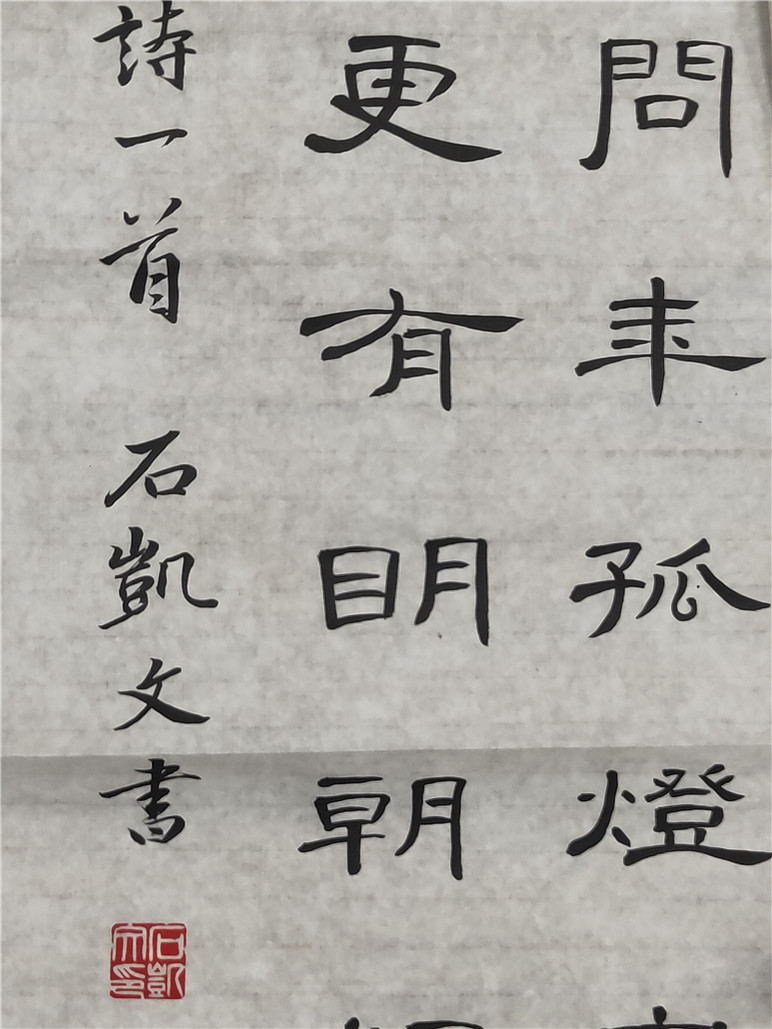 問年孤燈
更有明朝
詩一首 石凱文書
石凱
文印